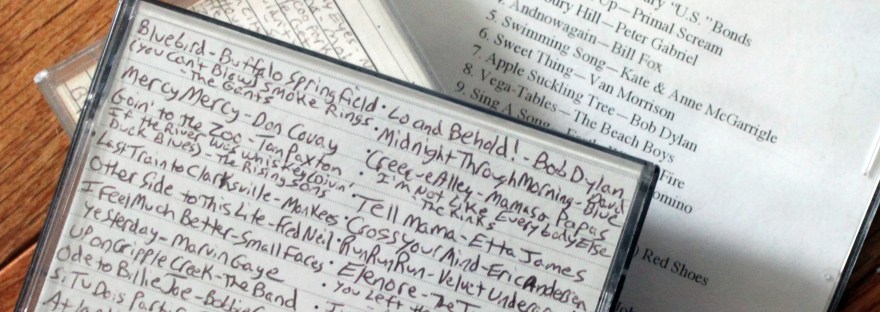 Bluebird - Buffalo Springfield
(You Can't Blow) Smoke Rings
- The Gents
Mercy Mercy - Don Covay
Goin' to the Zoo - Tom Paxton
If the River Was Whiskey (Divin'
Duck Blues) - The Rising Sons
Last Train to Clarksville - Monkees
Other Side to This Life - Fred Neil
I Feel Much Better - Small Faces
Yesterday - Marvin Gaye
Up on Cripple Creek - The Band
Ode to Billie Joe - Bobbie
Si Tu Dois Partir
· Lo and Behold! - Bob Dylan
· Midnight Through Morning - David
Blue
· Creeque Alley - Mamas & Papas
· I'm Not Like Everybody Else
- The Kinks
· Tell Mama - Etta James
· Cross Your Mind - Eric Andersen
· Run Run Run - Velvet Underground
· Elenore - The
· You Left the
"U.S." Bonds
Up - Primal Scream
bury Hill - Peter Gabriel
4. Andnowagain - Bill Fox
5. Swimming Song - Kate & Anne McGarrigle
6. Sweet Thing - Van Morrison
7. Apple Suckling Tree - Bob Dylan
8. Vega-Tables - The Beach Boys
9. Sing A Song
Fire
omino
) Red Shoes